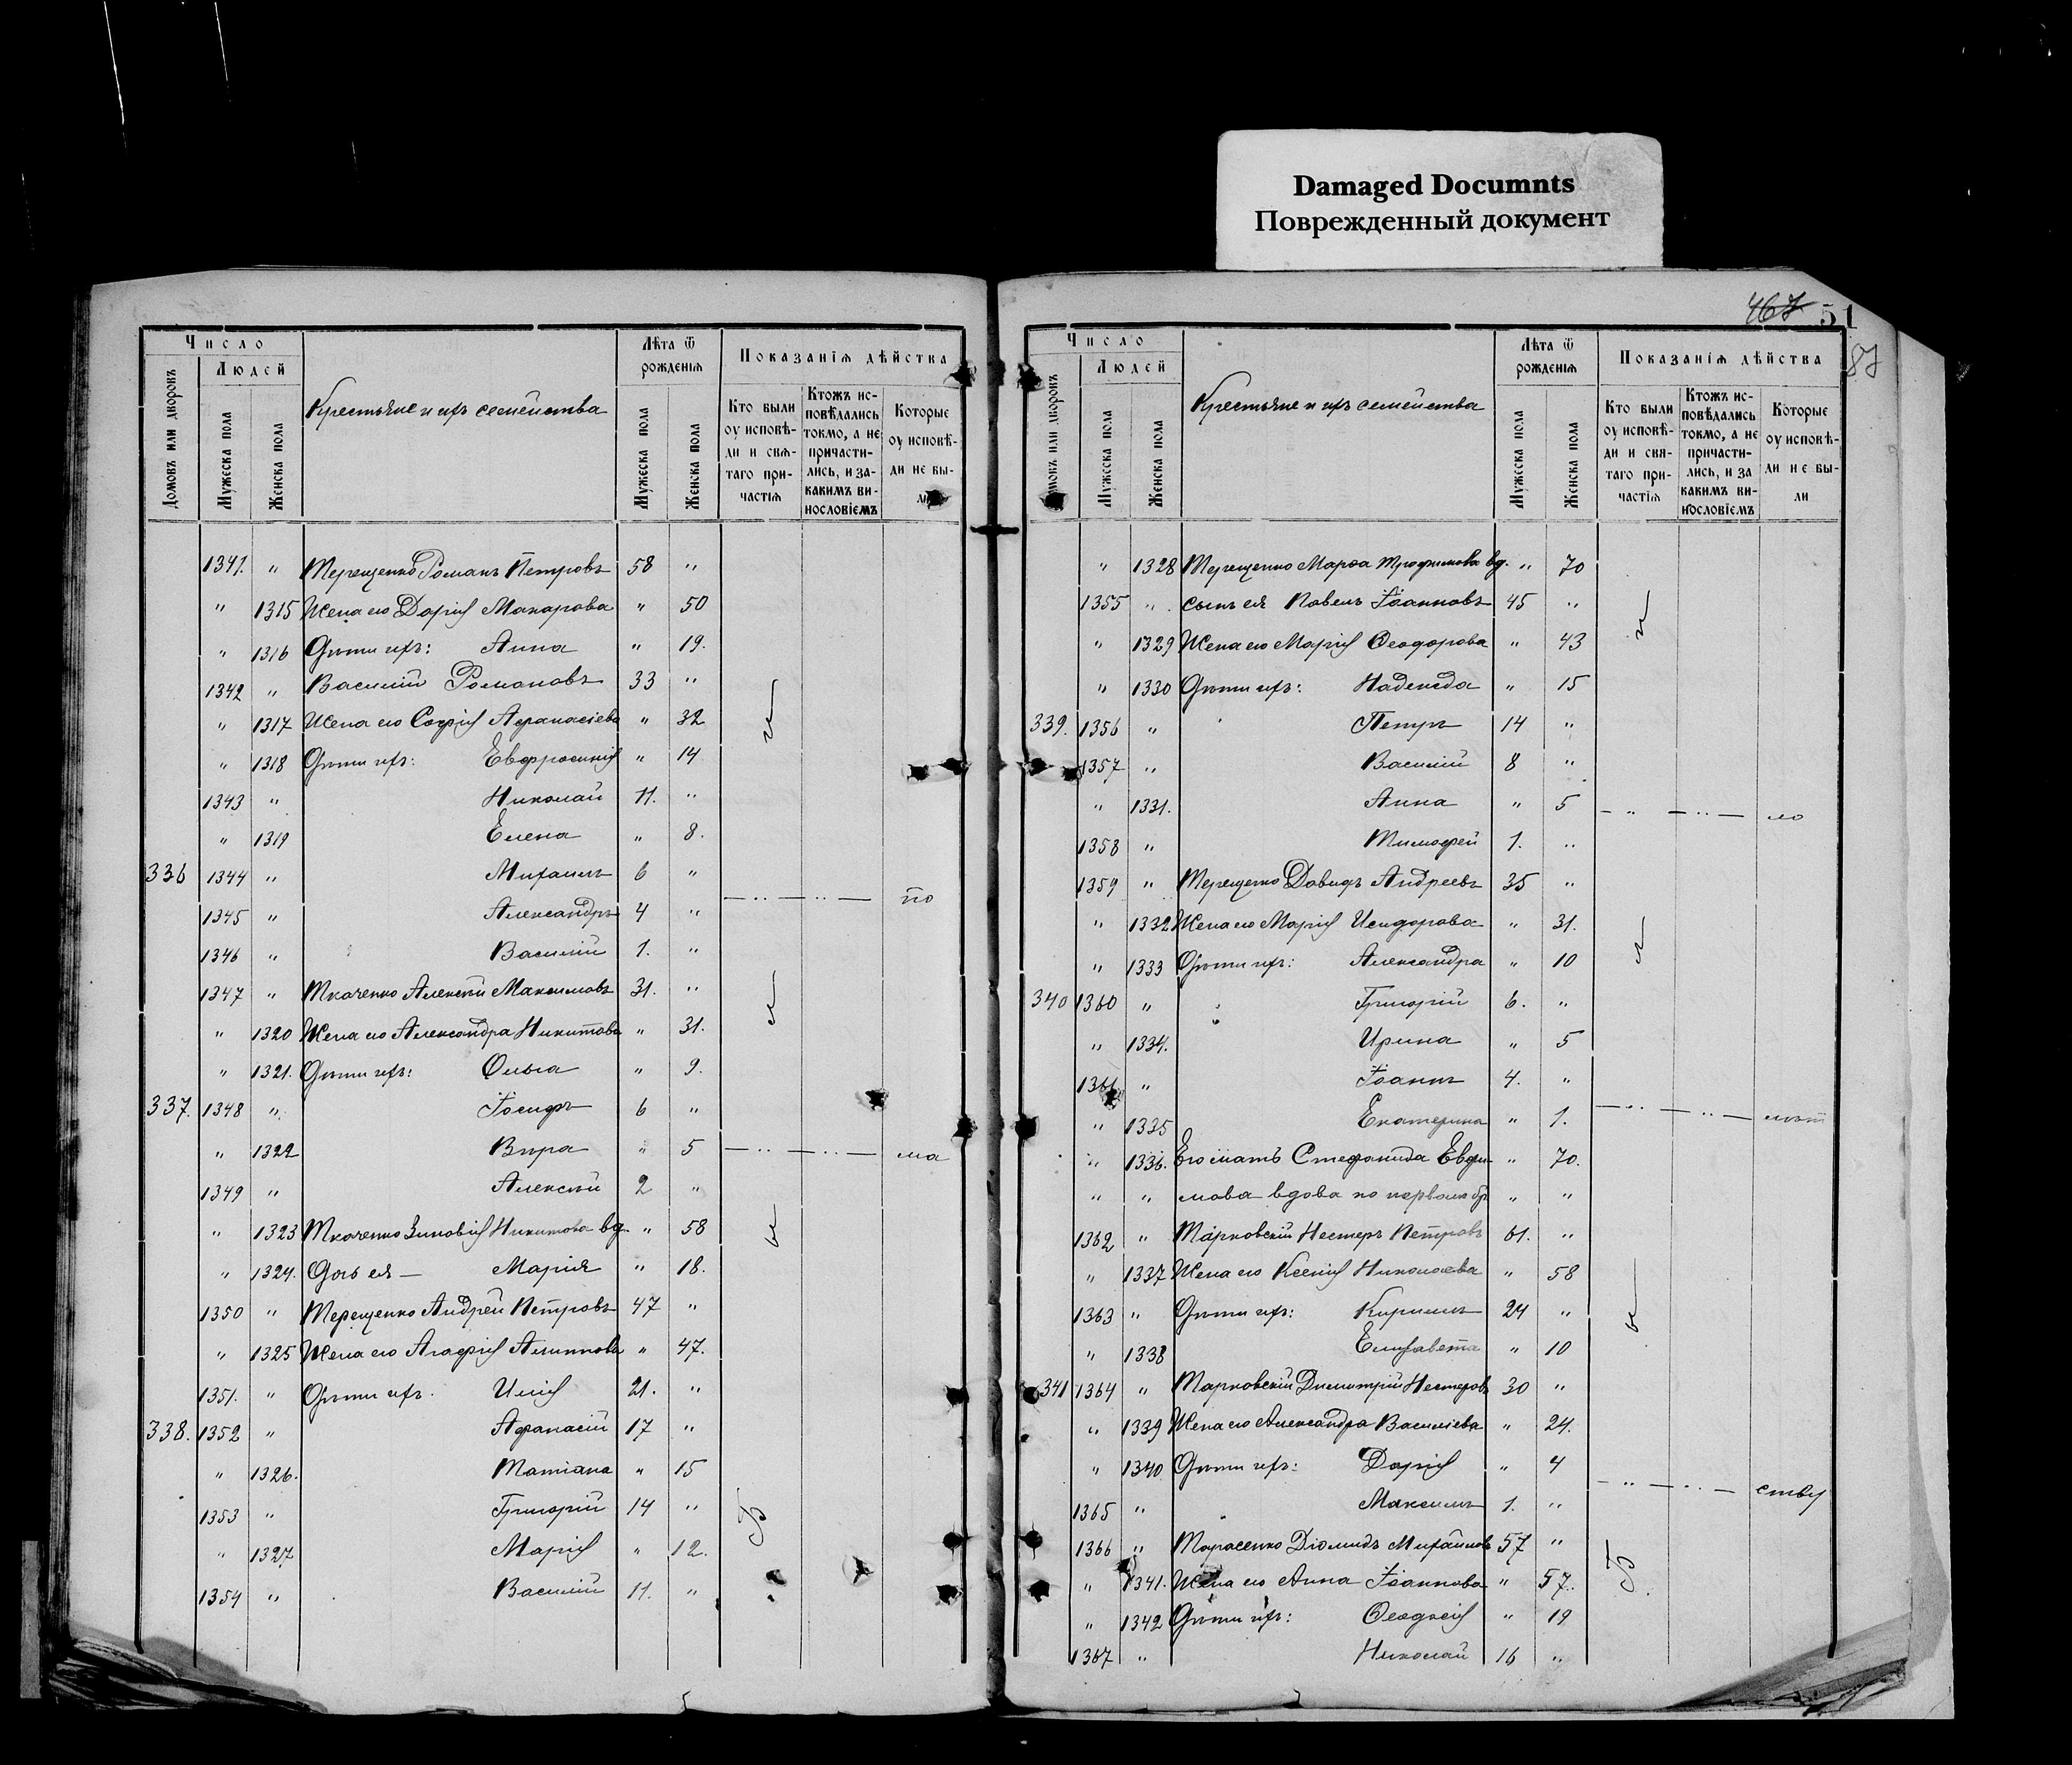 Damaged Documnts
Поврежденный документ
467 51
87
Число
Людей
Домовъ или дворовъ
Мужеска пола
Женска пола
Крестьяне и ихъ семейства
Лѣта ѿ рожденія
Мужеска пола
Женска пола
Показанія дѣйства
Кто были оу исповѣ-
ди и свѧ-
таго при-
частіѧ
Ктожъ ис-
повѣдались
токмо, а не
причасти-
лись, и за-
какимъ ви-
нословіемъ
Которые
оу исповѣ-
ди не бы-
ли
1341. " Терещенко Романъ Петровъ 58 "
" 1315 Жена его Дарія Макарова " 50
" 1316 Дѣти ихъ: Анна " 19.
1342 " Василій Романовъ 33 "
" 1317 Жена его Софія Афанасіева " 32
" 1318 Дѣти ихъ: Евфросинія " 14
1343 " Николай 11. "
" 1319 Елена " 8.
336 1344 " Михаилъ 6 "
1345 " Александръ 4 " — " — " — по
1346 " Василій 1. "
1347 " Ткаченко Алексѣй Максимовъ 31. "
" 1320 Жена его Александра Никитова " 31.
" 1321. Дѣти ихъ: Ольга " 9.
337. 1348 " Іосифъ 6 "
" 1322 Вѣра " 5 — " — " — ма
1349 " Алексѣй 2 "
" 1323 Ткаченко Зиновія Никитова вд. " 58
" 1324. Дочь ея — Марія " 18.
1350 " Терещенко Андрей Петровъ 47 "
" 1325 Жена его Агафія " 47.
1351. " Дѣти ихъ. Илія 21. "
338. 1352 " Афанасій 17 "
" 1326. Татіана " 15
1353 " Григорій 14 "
" 1327 Марія " 12.
1354 " Василій 11. "
Число
Людей
Домовъ или дворовъ
Мужеска пола
Женска пола
Крестьяне и ихъ семейства
Лѣта ѿ рожденія
Мужеска пола
Женска пола
Показанія дѣйства
Кто были
оу исповѣ-
ди и свѧ-
таго при-
частіѧ
Ктожъ ис-
повѣдались
токмо, а не
причасти-
лись, и за
какимъ ви-
нословіемъ
Которые
оу исповѣ-
ди не бы-
ли
" 1328 Терещенко Марѳа Трофимова вд. " 70
1355 " сынъ ея Павелъ Іоанновъ 45 "
" 1329 Жена его Марія Ѳеодорова " 43
" 1330 Дѣти ихъ: Надежда " 15
339. 1356 " Петръ 14 "
1357 " Василій 8 "
" 1331. Анна " 5 — " — " — ло
1358 " Тимофей 1. "
1359 " Терещенко Давидъ Андреевъ 35 "
" 1332 Жена его Марія Исидорова " 31.
" 1333 Дѣти ихъ: Александра " 10
340 1360 " Григорій 6. "
" 1334. Ирина " 5
1361 " Іоаннъ 4. "
" 1335 Екатерина " 1. — " — " — лѣт
" 1336. Его мать Стефанида Евфи- " 70.
" " мова вдова по первому бр " "
1362 " Марковскій Нестеръ Петровъ 61. "
" 1337 Жена его Ксенія Николаева " 58
1363 " Дѣти ихъ: Кириллъ 24 "
" 1338 Елисавета " 10
341 1364 " Марковскій Димитрій Нестеровъ 30 "
" 1339 Жена его Александра Василіева " 24.
" 1340 Дѣти ихъ: Дарія " 4
1365 " Максимъ 1. " — " — " — ству
1366 " Тарасенко Діомидъ Михайловъ 57 "
" 1341. Жена его Анна Іоаннова " 57.
" 1342 Дѣти ихъ: Ѳеодосія " 19
1367 " Николай 16 "